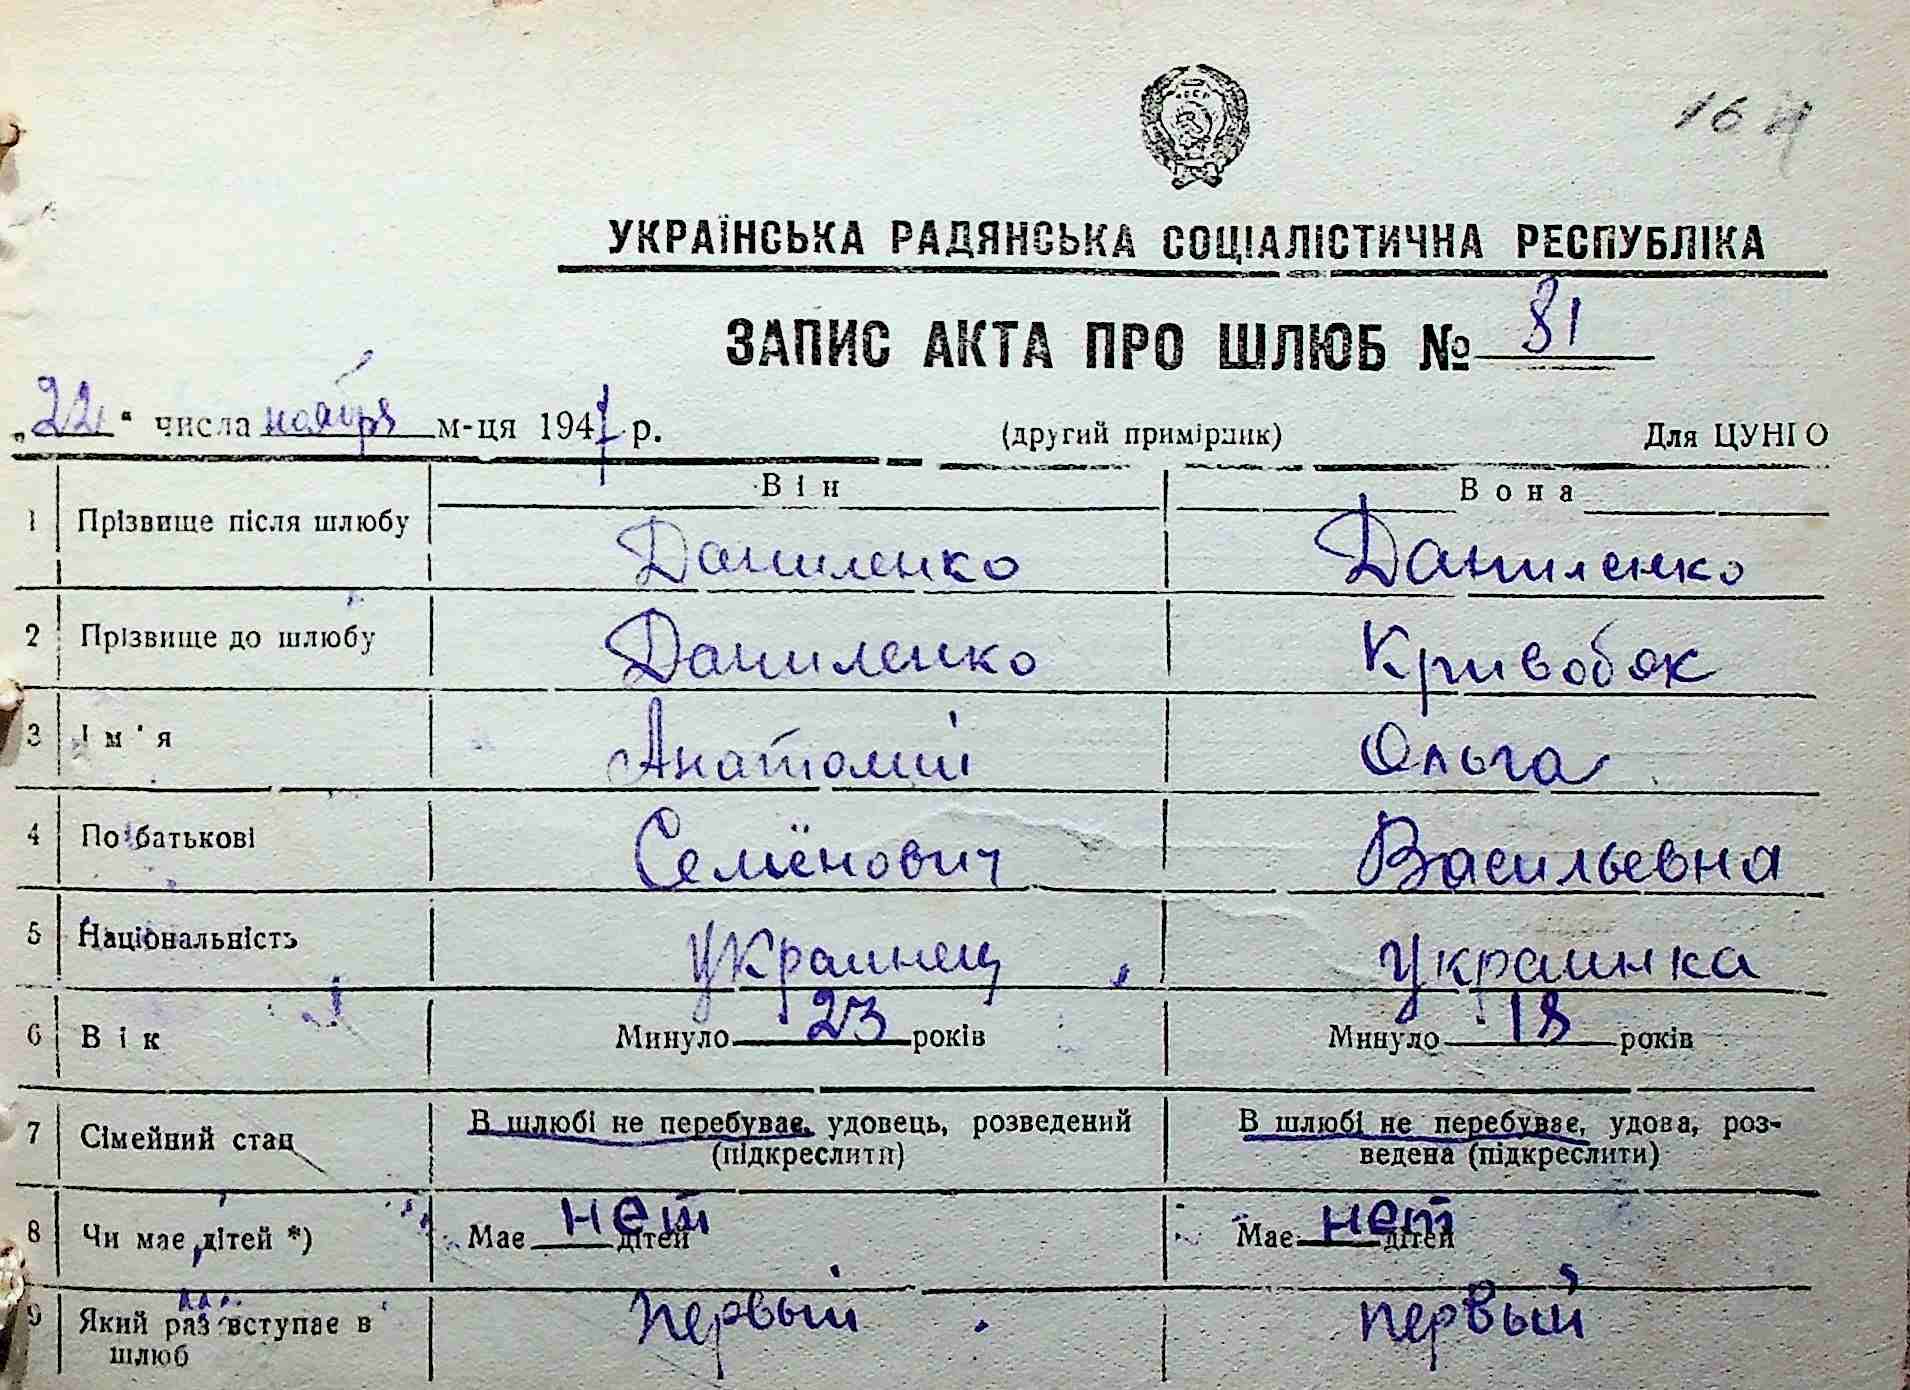 УКРАЇНСЬКА РАДЯНСЬКА СОЦІАЛІСТИЧНА РЕСПУБЛІКА
ЗАПИС АКТА ПРО ШЛЮБ № 81
„22“ числа ноября м-ця 1941 р. (другий примірник) Для ЦУНГО
Він Вона
1 Прізвище після шлюбу Даниленко Даниленко
2 Прізвище до шлюбу Даниленко Кривобок
3 Ім'я Анатолий Ольга
4 По батькові Семёнович Васильевна
5 Національність украинец украинка
6 Вік Минуло 23 років Минуло 18 років
7 Сімейний стан В шлюбі не перебуває, удовець, розведений В шлюбі не перебуває, удова, роз-
(підкреслити) ведена (підкреслити)
8 Чи має дітей *) Має нет дітей Має нет дітей
9 Який раз вступає в первый первый
шлюб